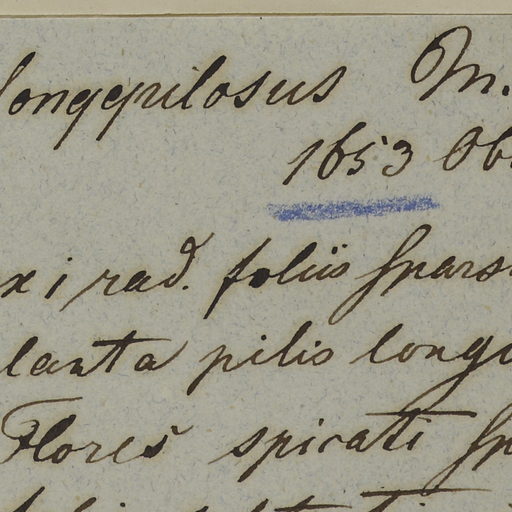 longepilosus M.
1653 Ob
x i rad. foliis spars
lanta pilis long
Flores spicati sp